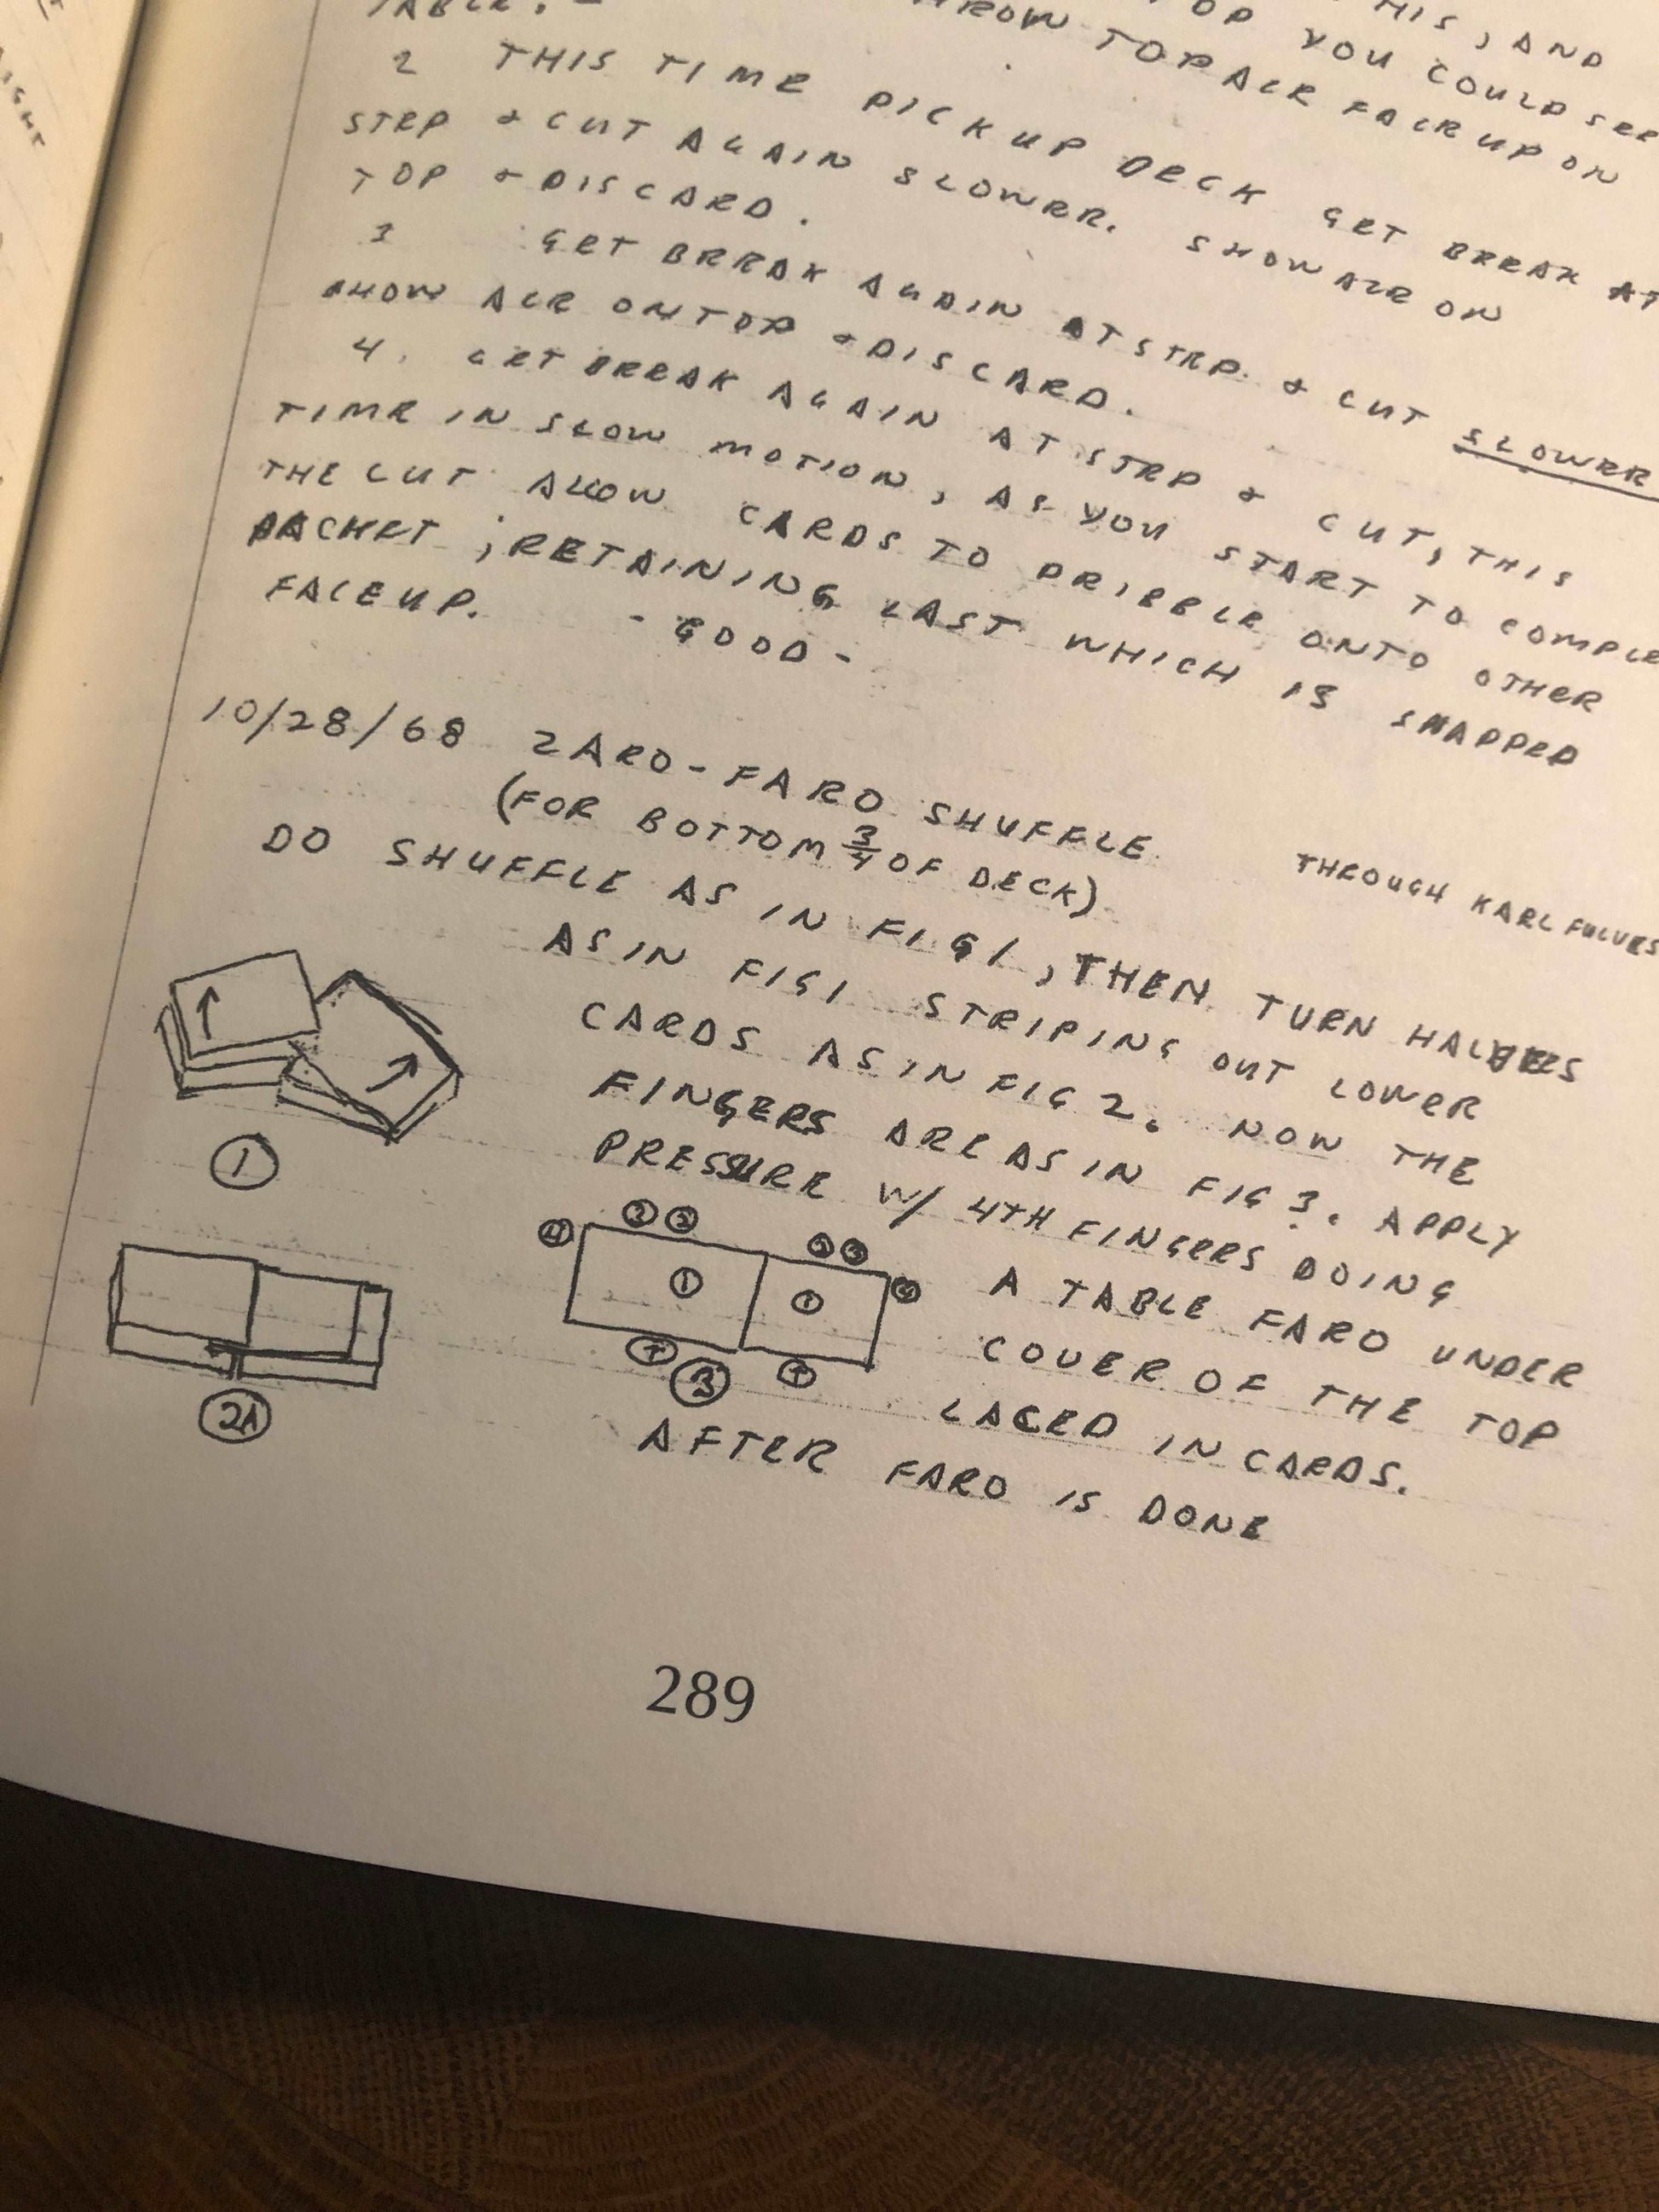 TABLE. –
HIS, AND
OP YOU COULD SEE
THROW TOP ACE FACE UP ON
2 THIS TIME PICK UP DECK GET BREAK AT
STEP & CUT AGAIN SLOWER. SHOW ACE ON
TOP & DISCARD.
3 GET BREAK AGAIN AT STEP & CUT SLOWER
SHOW ACE ON TOP & DISCARD.
4. GET BREAK AGAIN AT STEP & CUT, THIS
TIME IN SLOW MOTION, AS YOU START TO COMPLE
THE CUT ALLOW CARDS TO DRIBBLE ONTO OTHER
PACKET ; RETAINING LAST WHICH IS SNAPPED
FACE UP. - GOOD -
10/28/68 ZARO-FARO SHUFFLE.
(FOR BOTTOM 3/4 OF DECK) THROUGH KARL FULVES
DO SHUFFLE AS IN FIG 1, THEN TURN HALVES
AS IN FIG 1 STRIPING OUT LOWER
CARDS AS IN FIG 2. NOW THE
FINGERS ARE AS IN FIG 3. APPLY
PRESSURE W/ 4TH FINGERS DOING
A TABLE FARO UNDER
COVER OF THE TOP
LACED IN CARDS.
AFTER FARO IS DONE
1
2A
4 3 2 2 3 4
1 1
T T
3
289